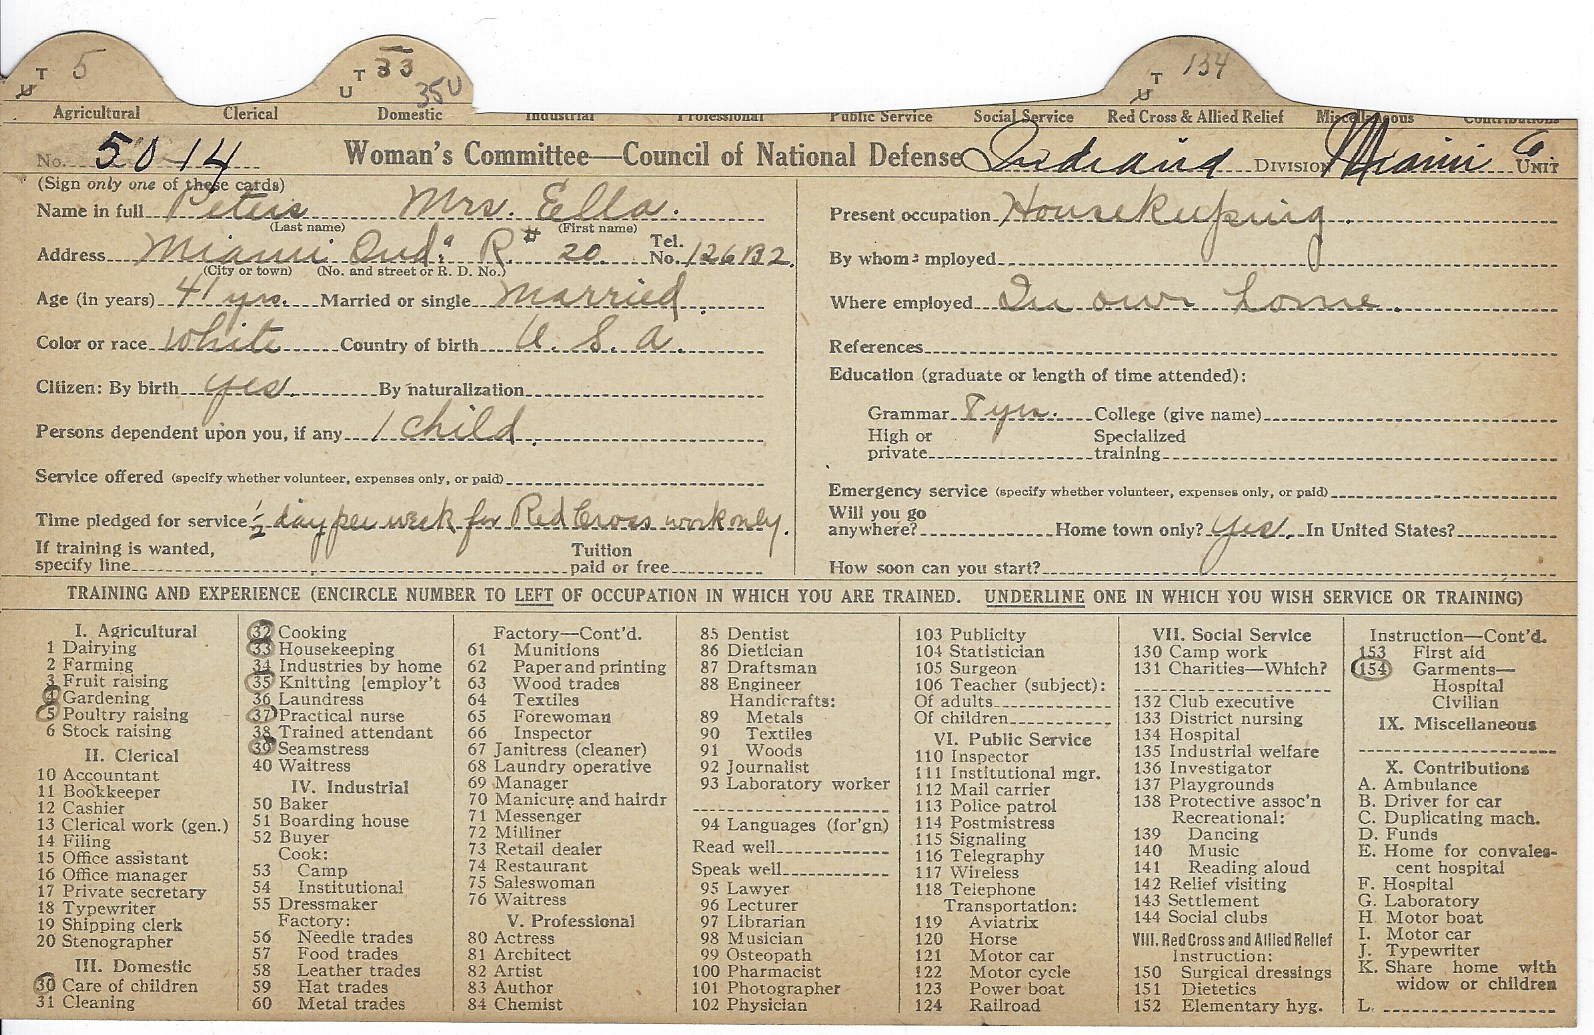 T 5 T 33 T 134
U U 35U U
Agricultural Clerical Domestic Industrial Professional Public Service Social Service Red Cross & Allied Relief Miscellaneous Contributions
No. 5014 Woman's Committee—Council of National Defense Indiana DIVISION Miami 6 UNIT
(Sign only one of these cards)
Name in full Peters Mrs. Ella.
(Last name) (First name)
Address Miami Ind. R# 20 Tel. No. 126B2.
(City or town) (No. and street or R. D. No.)
Age (in years) 41 yrs. Married or single Married
Color or race White Country of birth U. S. A.
Citizen: By birth yes. By naturalization
Persons dependent upon you, if any 1 child.
Service offered (specify whether volunteer, expenses only, or paid)
Time pledged for service 1/2 day per week for Red Cross work only.
If training is wanted, Tuition
specify line paid or free
Present occupation Housekeeping.
By whom employed
Where employed In own home.
References
Education (graduate or length of time attended):
Grammar 8 yrs. College (give name)
High or Specialized
private training
Emergency service (specify whether volunteer, expenses only, or paid)
Will you go
anywhere? Home town only? Yes. In United States?
How soon can you start?
TRAINING AND EXPERIENCE (ENCIRCLE NUMBER TO LEFT OF OCCUPATION IN WHICH YOU ARE TRAINED. UNDERLINE ONE IN WHICH YOU WISH SERVICE OR TRAINING)
I. Agricultural
1 Dairying
2 Farming
3 Fruit raising
4 Gardening
5 Poultry raising
6 Stock raising
II. Clerical
10 Accountant
11 Bookkeeper
12 Cashier
13 Clerical work (gen.)
14 Filing
15 Office assistant
16 Office manager
17 Private secretary
18 Typewriter
19 Shipping clerk
20 Stenographer
III. Domestic
30 Care of children
31 Cleaning
32 Cooking
33 Housekeeping
34 Industries by home
35 Knitting [employ't
36 Laundress
37 Practical nurse
38 Trained attendant
39 Seamstress
40 Waitress
IV. Industrial
50 Baker
51 Boarding house
52 Buyer
Cook:
53 Camp
54 Institutional
55 Dressmaker
Factory:
56 Needle trades
57 Food trades
58 Leather trades
59 Hat trades
60 Metal trades
Factory—Cont'd.
61 Munitions
62 Paper and printing
63 Wood trades
64 Textiles
65 Forewoman
66 Inspector
67 Janitress (cleaner)
68 Laundry operative
69 Manager
70 Manicure and hairdr
71 Messenger
72 Milliner
73 Retail dealer
74 Restaurant
75 Saleswoman
76 Waitress
V. Professional
80 Actress
81 Architect
82 Artist
83 Author
84 Chemist
85 Dentist
86 Dietician
87 Draftsman
88 Engineer
Handicrafts:
89 Metals
90 Textiles
91 Woods
92 Journalist
93 Laboratory worker
94 Languages (for'gn)
Read well
Speak well
95 Lawyer
96 Lecturer
97 Librarian
98 Musician
99 Osteopath
100 Pharmacist
101 Photographer
102 Physician
103 Publicity
104 Statistician
105 Surgeon
106 Teacher (subject):
Of adults
Of children
VI. Public Service
110 Inspector
111 Institutional mgr.
112 Mail carrier
113 Police patrol
114 Postmistress
115 Signaling
116 Telegraphy
117 Wireless
118 Telephone
Transportation:
119 Aviatrix
120 Horse
121 Motor car
122 Motor cycle
123 Power boat
124 Railroad
VII. Social Service
130 Camp work
131 Charities—Which?
132 Club executive
133 District nursing
134 Hospital
135 Industrial welfare
136 Investigator
137 Playgrounds
138 Protective assoc'n
Recreational:
139 Dancing
140 Music
141 Reading aloud
142 Relief visiting
143 Settlement
144 Social clubs
VIII. Red Cross and Allied Relief
Instruction:
150 Surgical dressings
151 Dietetics
152 Elementary hyg.
Instruction—Cont'd.
153 First aid
154 Garments—
Hospital
Civilian
IX. Miscellaneous
X. Contributions
A. Ambulance
B. Driver for car
C. Duplicating mach.
D. Funds
E. Home for convales-
cent hospital
F. Hospital
G. Laboratory
H. Motor boat
I. Motor car
J. Typewriter
K. Share home with
widow or children
L.